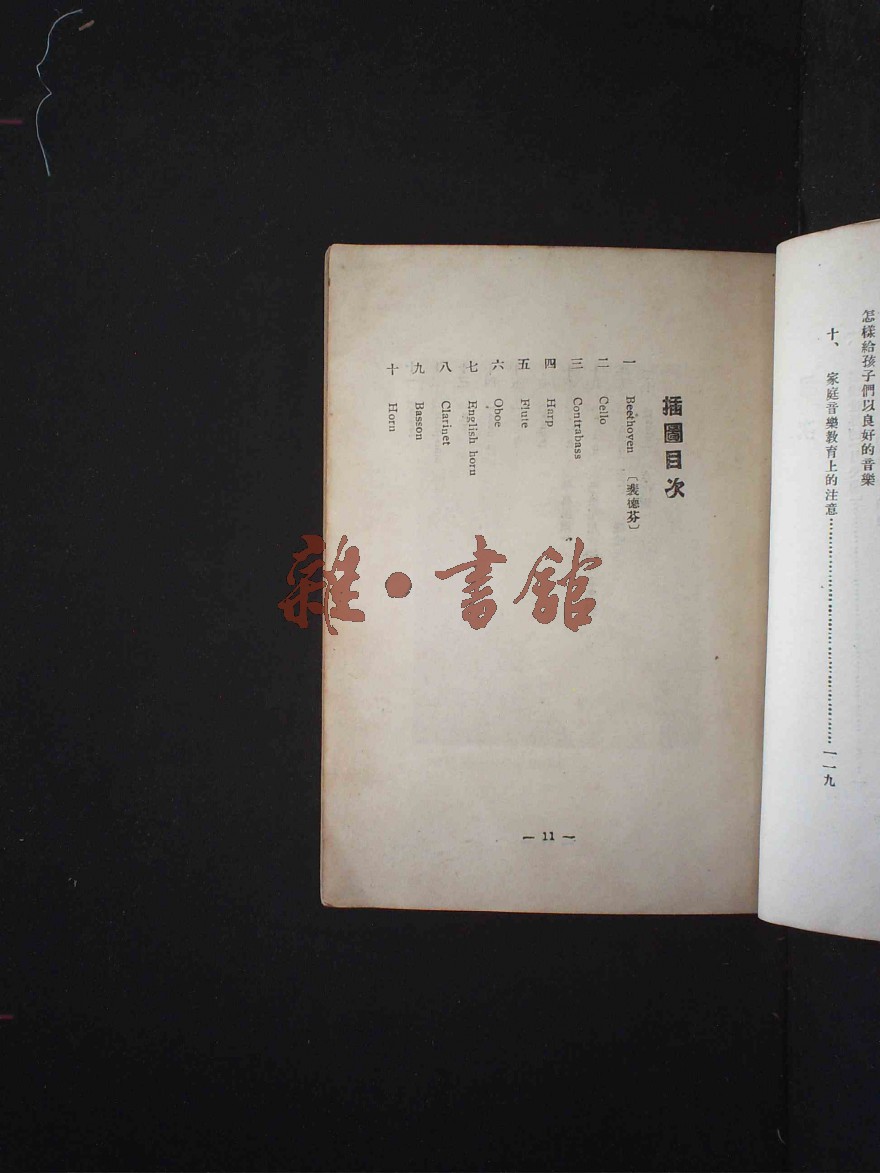 怎樣給孩子們以良好的音樂
十、 家庭音樂教育上的注意…………………………一一九
插圖目次
一 Beethoven 〔裴德芬〕
二 Cello
三 Contrabass
四 Harp
五 Flute
六 Oboe
七 English horn
八 Clarinet
九 Basson
十 Horn
— 11 —
雜·書館